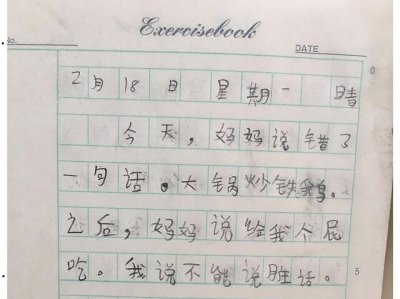 Exercisebook
No. DATE
2月18日 星期一 晴
今天，妈妈说错了
一句话。大锅炒铁鸡。
之后，妈妈说给我个屁
吃。我说不能说脏话。
0
5